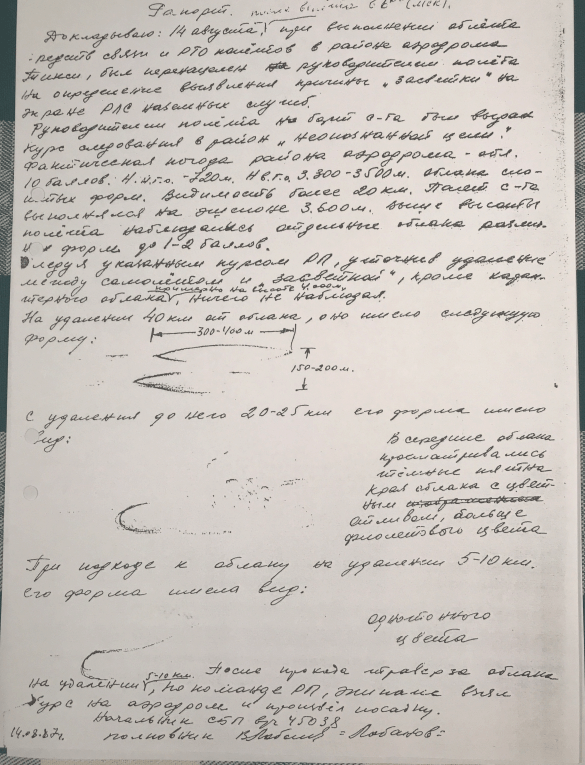 Рапорт.
Докладываю: 14 августа, при выполнении облёта
средств связи и РТО полётов в района аэродрома
Тикси, был перенацелен руководителем полёта
на определение выявления причины "засветки" на
экране РЛС наземных служб.
Руководителем полёта на борт с-та был выдан
курс следования в район "неопознанной цели".
Фактическая погода района аэродрома - отл.
10 баллов. Н.н.г.о. - 720м. Н в.г.о. 3.300-3500м. облака сло-
истых форм. Видимость более 20 км. Полет с-та
выполнялся на эшелоне 3.600м. Выше высоты
полёта наблюдались отдельные облака разли-
ч форм до 1-2 баллов.
Следуя указанным курсом РП, уточнив удаление
между самолётом и "засветкой", кроме харак-
примерно на высоте 4.000м
терного облака, ничего не наблюдал.
На удалении 40 км от облака, оно имело следующую
форму:
300-400 м
150-200м.
С удаления до него 20-25 км его форма имело
вид:
В середине облака
просматривались
тёмные пятна
края облака с цвет-
ным
отливом, больше
фиолетового цвета
При подходе к облаку на удалении 5-10 км.
его форма имела вид:
однотонного
цвета
5-10 км.
После прохода траверза облака
на удалении, по команде РП, экипаж взял
курс на аэродром и произвёл посадку.
Начальник СБП в/ч 45038
14.08.87г. полковник = Лобанов =